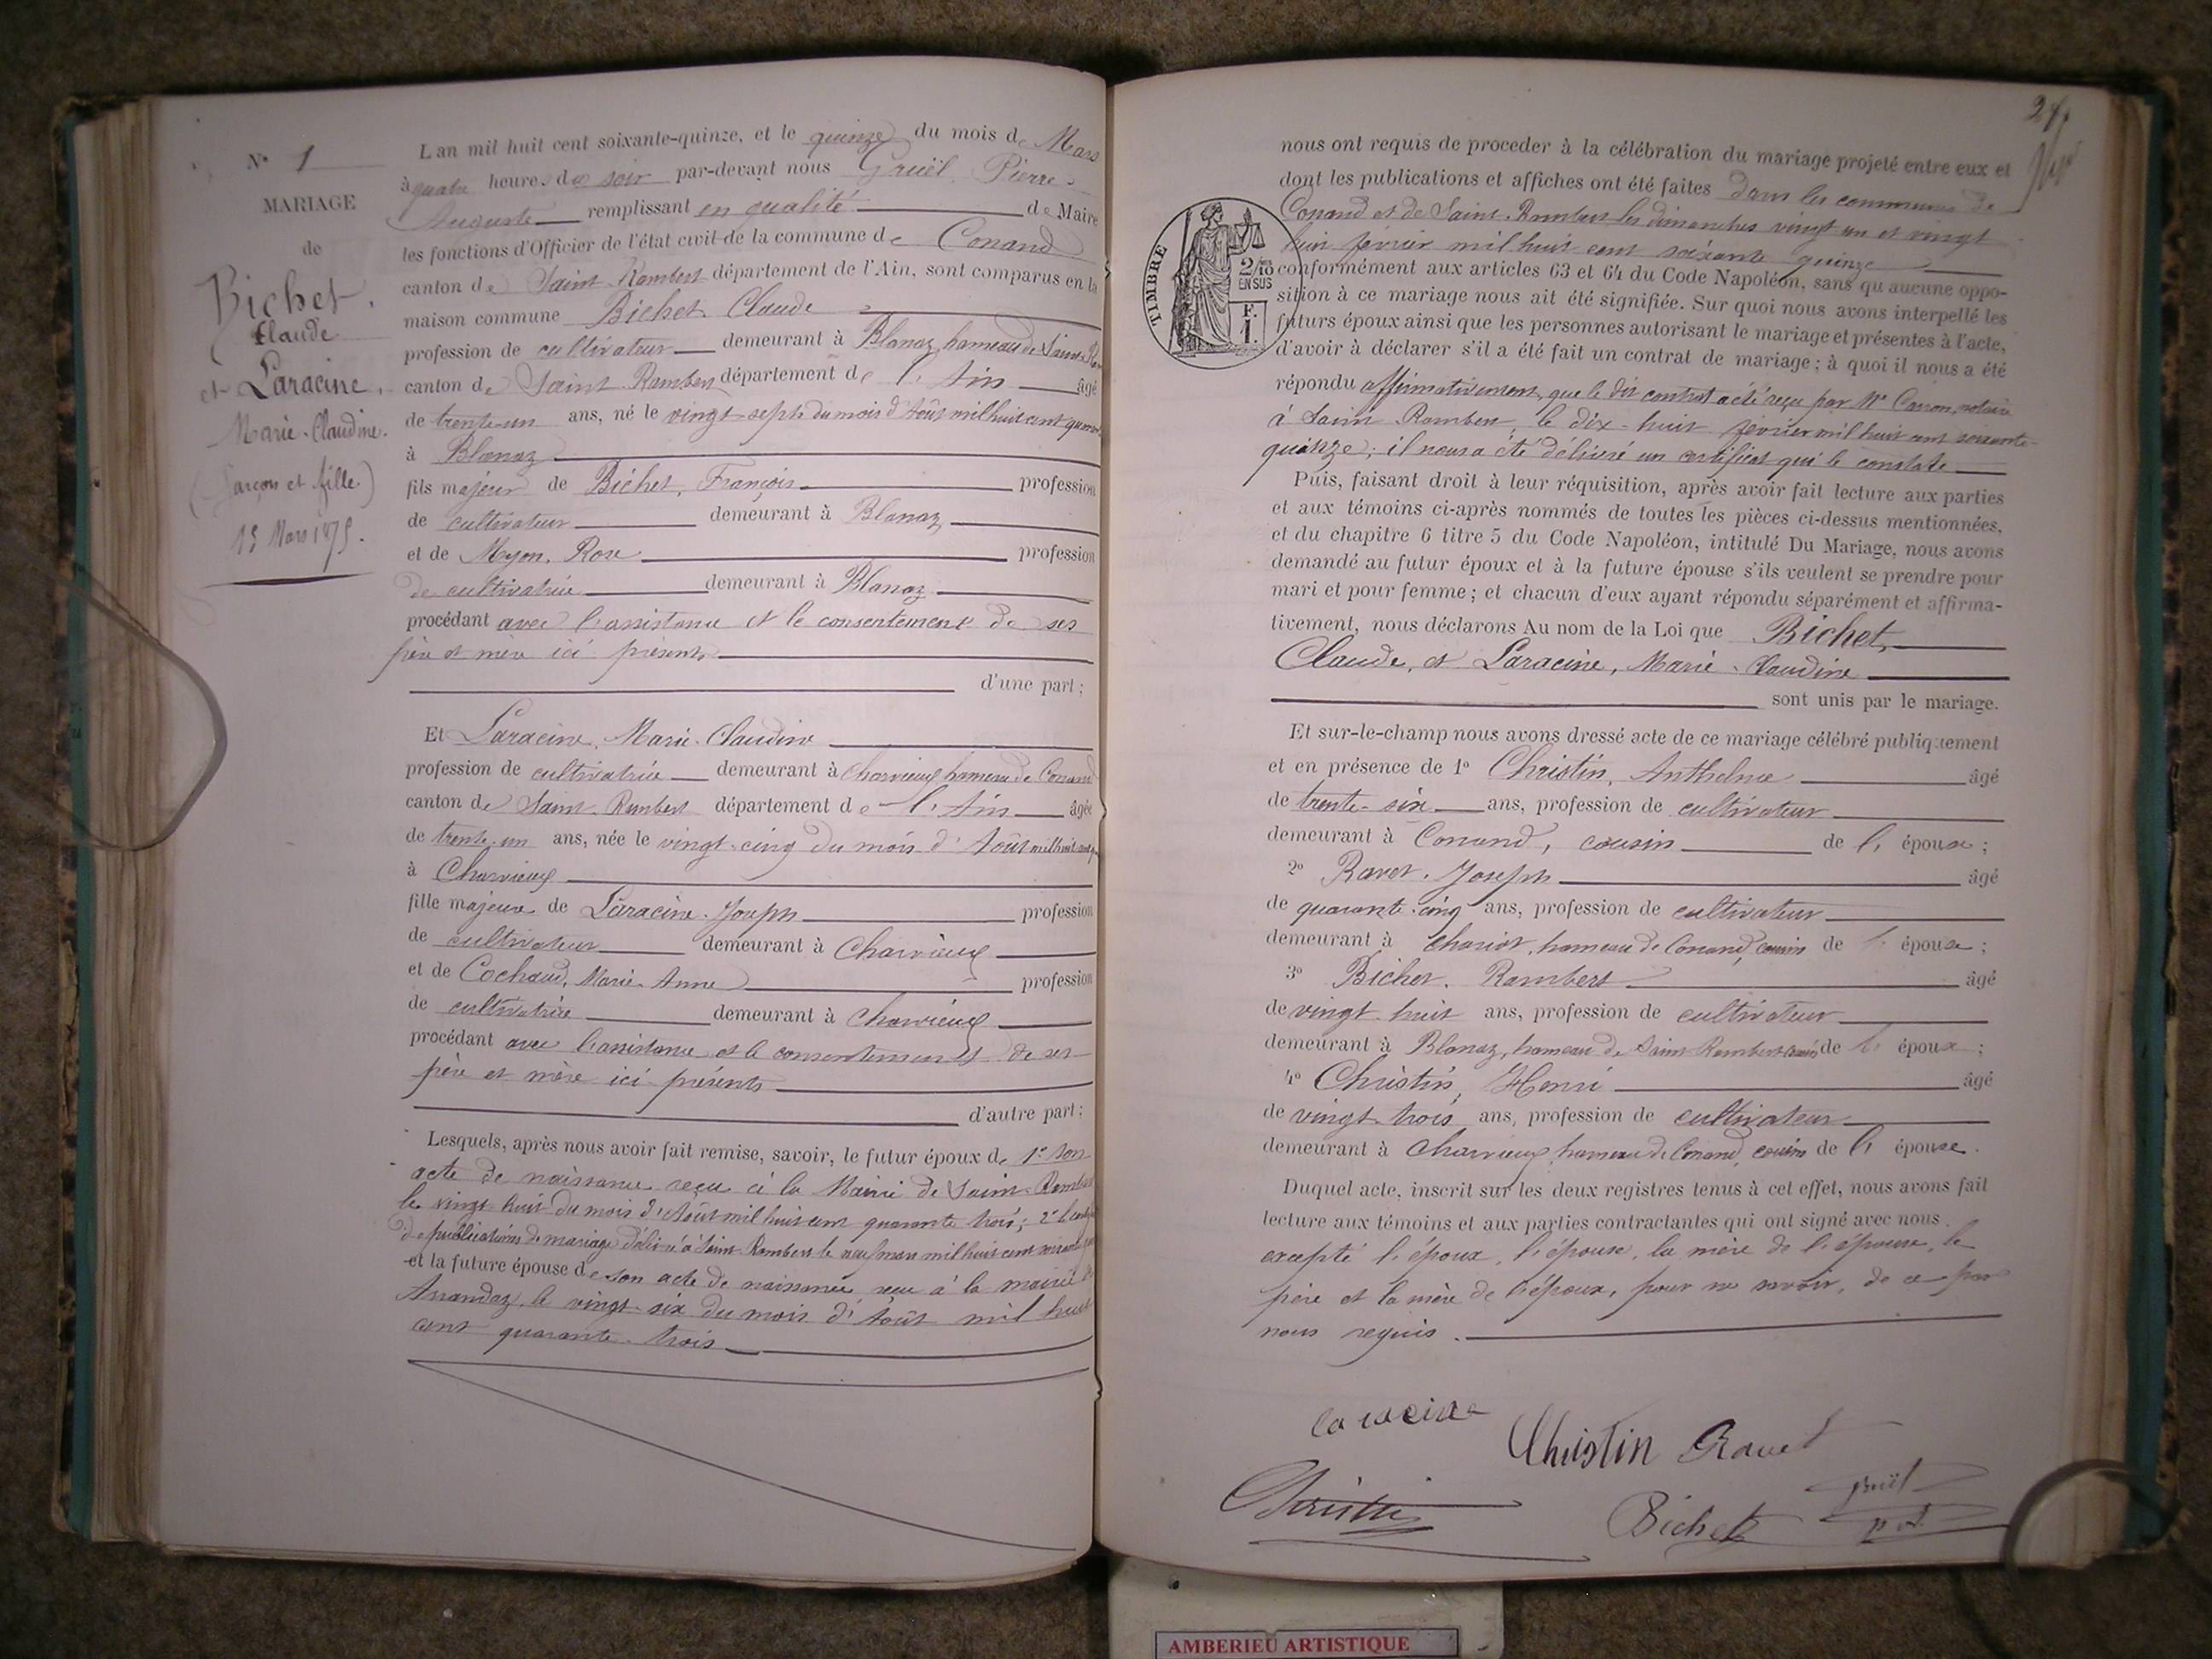 N° 1
MARIAGE
de
Bichet,
Claude
et Laracine,
Marie-Claudine.
(Garçon et fille)
15 Mars 1875.
L'an mil huit cent soixante-quinze, et le quinze du mois de Mars
à quatre heures du soir par-devant nous Gruël Pierre
Auguste remplissant en qualité de Maire
les fonctions d'Officier de l'état civil de la commune de Conand
canton de Saint-Rambert département de l'Ain, sont comparus en la
maison commune Bichet Claude
profession de cultivateur demeurant à Blanaz hameau de Saint-Ram
canton de Saint-Rambert département de l'Ain âgé
de trente-un ans, né le vingt-sept du mois d'Août mil huit cent quarante
à Blanaz
fils majeur de Bichet, François profession
de cultivateur demeurant à Blanaz
et de Myon, Rose profession
de cultivatrice demeurant à Blanaz
procédant avec l'assistance et le consentement de ses
père et mère ici présents
d'une part ;
Et Laracine, Marie-Claudine
profession de cultivatrice demeurant à Charvieux hameau de Conand
canton de Saint-Rambert département de l'Ain âgée
de trente-un ans, née le vingt-cinq du mois d'Août mil huit cent
à Charvieux
fille majeure de Laracine Joseph profession
de cultivateur demeurant à Charvieux
et de Cochaud, Marie-Anne profession
de cultivatrice demeurant à Charvieux
procédant avec l'assistance et le consentement de ses
père et mère ici présents
d'autre part ;
Lesquels, après nous avoir fait remise, savoir, le futur époux de 1° son
acte de naissance reçu à la Mairie de Saint-Rambert
le vingt-huit du mois d'Août mil huit cent quarante trois ; 2° le certificat
de publications de mariage délivré à Saint-Rambert le neuf mars mil huit cent soixante
et la future épouse de son acte de naissance reçu à la mairie
Arandaz, le vingt-six du mois d'Août mil huit
cent quarante-trois
nous ont requis de proceder à la célébration du mariage projeté entre eux et
dont les publications et affiches ont été faites dans les communes de
Conand et de Saint-Rambert les dimanches vingt-un et vingt
huit février mil huit cent soixante quinze
TIMBRE
2/10
EN SUS
F.
1.
conformément aux articles 63 et 64 du Code Napoléon, sans qu'aucune oppo-
sition à ce mariage nous ait été signifiée. Sur quoi nous avons interpellé les
futurs époux ainsi que les personnes autorisant le mariage et présentes à l'acte,
d'avoir à déclarer s'il a été fait un contrat de mariage ; à quoi il nous a été
répondu affirmativement, que le dit contrat a été reçu par Me Carron, notaire
à Saint-Rambert, le dix-huit février mil huit cent soixante
quinze ; il nous a été délivré un certificat qui le constate
Puis, faisant droit à leur réquisition, après avoir fait lecture aux parties
et aux témoins ci-après nommés de toutes les pièces ci-dessus mentionnées,
et du chapitre 6 titre 5 du Code Napoléon, intitulé Du Mariage, nous avons
demandé au futur époux et à la future épouse s'ils veulent se prendre pour
mari et pour femme ; et chacun d'eux ayant répondu séparément et affirma-
tivement, nous déclarons Au nom de la Loi que Bichet,
Claude, et Laracine, Marie-Claudine
sont unis par le mariage.
Et sur-le-champ nous avons dressé acte de ce mariage célébré publiquement
et en présence de 1° Christin, Anthelme âgé
de trente-six ans, profession de cultivateur
demeurant à Conand, cousin de l'épouse ;
2° Ravet Joseph âgé
de quarante-cinq ans, profession de cultivateur
demeurant à Chariot, hameau de Conand, cousin de l'épouse ;
3° Bichet, Rambert âgé
de vingt-huit ans, profession de cultivateur
demeurant à Blanaz, hameau de Saint-Rambert cousin de l'époux ;
4° Christin, Henri âgé
de vingt trois ans, profession de cultivateur
demeurant à Charvieux hameau de Conand, cousin de l'épouse.
Duquel acte, inscrit sur les deux registres tenus à cet effet, nous avons fait
lecture aux témoins et aux parties contractantes qui ont signé avec nous
excepté l'époux, l'épouse, la mère de l'épouse, le
père et la mère de l'époux, pour ne savoir, de ce par
nous requis.
laracine
Christin Ravet
Christin
Bichet
gruël
AMBERIEU ARTISTIQUE